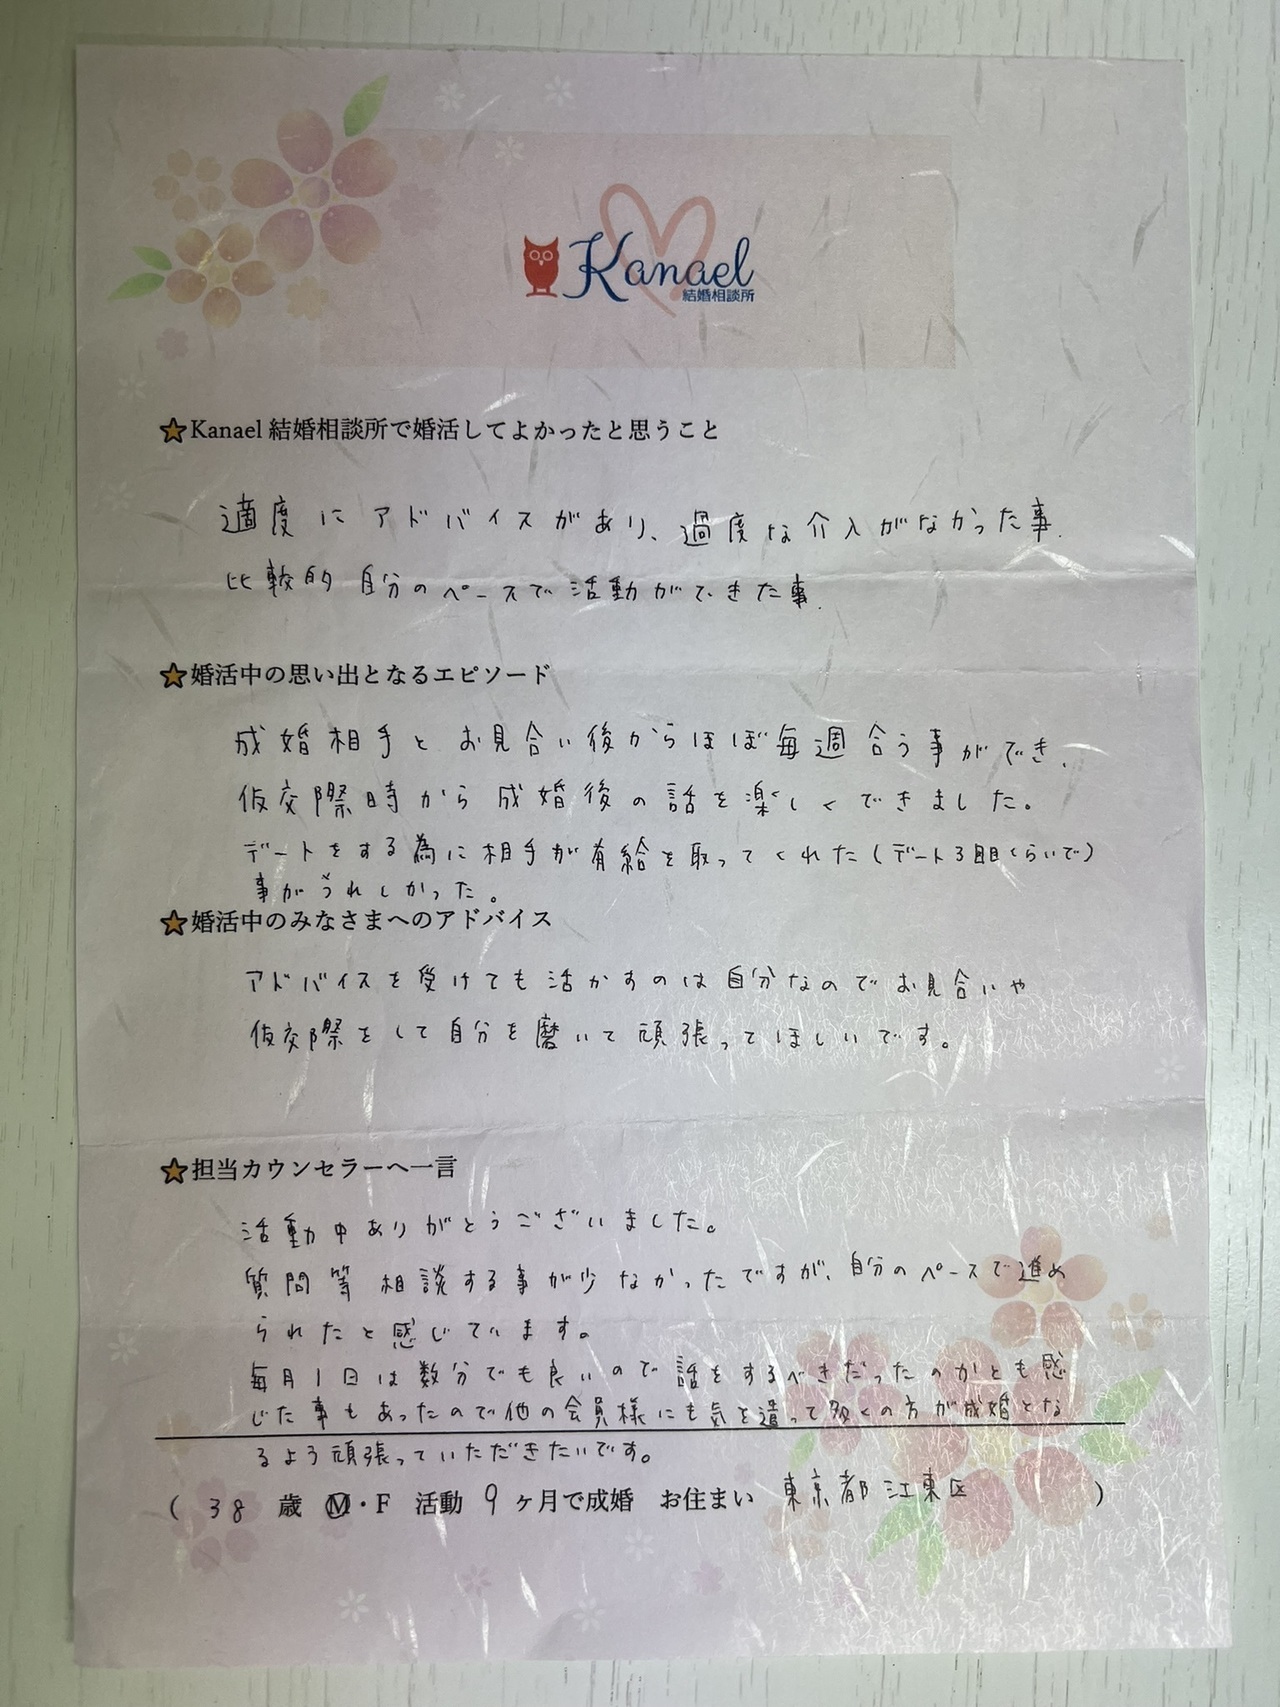 Kanael
結婚相談所
Kanael 結婚相談所で婚活してよかったと思うこと
適度にアドバイスがあり、過度な介入がなかった事.
比較的自分のペースで活動ができた事.
婚活中の思い出となるエピソード
成婚相手とお見合い後からほぼ毎週合う事ができ、
仮交際時から成婚後の話を楽しくできました。
デートをする為に相手が有給を取ってくれた(デート3回目くらいで)
事がうれしかった。
婚活中のみなさまへのアドバイス
アドバイスを受けても活かすのは自分なのでお見合いや
仮交際をして自分を磨いて頑張ってほしいです。
担当カウンセラーへ一言
活動中ありがとうございました。
質問等相談する事が少なかったですが、自分のペースで進め
られたと感じています。
毎月1日は数分でも良いので話をするべきだったのかとも感
じた事もあったので他の会員様にも気を遣って多くの方が成婚とな
るよう頑張っていただきたいです。
( 38 歳 M・F 活動 9 ヶ月で成婚 お住まい 東京都江東区 )